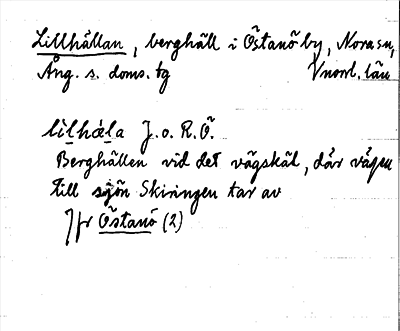 Lillhällan, berghäll i Östanö by, Nora sn,
Ång. s. doms. tg Vnorrl. län
lìlhä́la J. o. R. Ö.
Berghällen vid det vägskäl, där vägen
till sjön Skiringen tar av
Jfr Östanö (2)